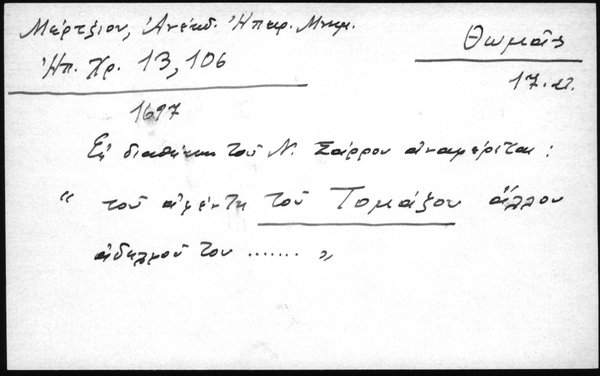 Μέρτζιου, Ἀνέκδ. Ἠπειρ. Μνημ.
Ἠπ. Χρ. 13, 106
Θωμᾶς
17. αἰ.
1697
Εἰς διαθήκην τοῦ Ν. Σάρρου ἀναφέρεται:
“ τοῦ ἀφέντη τοῦ Τομάζου ἄλλου
ἀδελφοῦ του ....... „